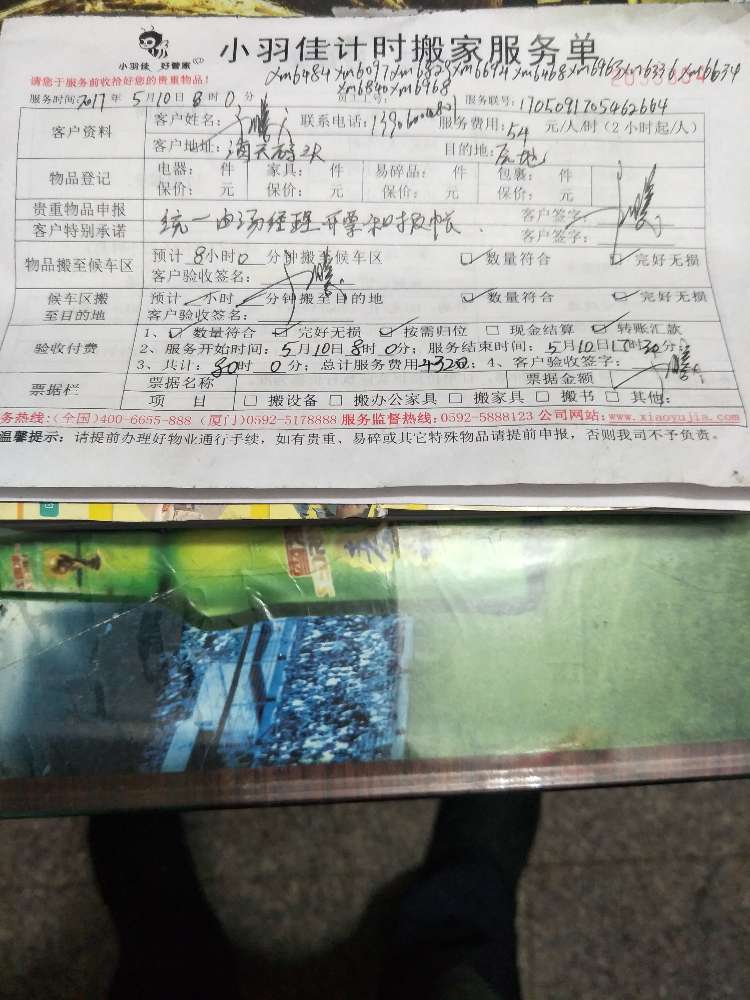 小羽佳 好管家
小羽佳计时搬家服务单
请您于服务前收拾好您的贵重物品!
xm6484 xm6097 xm6823 xm6694 xm6468 xm6963 xm6336 xm6634
xm6840 xm6968
服务时间: 2017年 5月10日 8时 0分 服务联号: 1705091705462664
客户资料 客户姓名: 联系电话: 服务费用: 54 元/人/时(2小时起/人)
客户地址: 目的地:
物品登记 电器: 件 家具: 件 易碎品: 件 包裹: 件
保价: 元 保价: 元 保价: 元 保价: 元
贵重物品申报 客户签字:
客户特别承诺 统一由场经理开票和报帐. 客户签字:
物品搬至候车区 预计 8小时0 分钟搬至候车区 ☑ 数量符合 ☑ 完好无损
客户验收签名:
候车区搬至目的地 预计 小时 分钟搬至目的地 ☑ 数量符合 ☑ 完好无损
客户验收签名:
验收付费 1、☑ 数量符合 ☑ 完好无损 ☑ 按需归位 □ 现金结算 ☑ 转账汇款
2、服务开始时间: 5月10日8时 0分; 服务结束时间: 5月10日17时30分;
3、共计: 80时 0分; 总计服务费用4320; 4、客户验收签字:
票据栏 票据名称 票据金额
项 目 □ 搬设备 □ 搬办公家具 □ 搬家具 □ 搬书 □ 其他:
务热线:(全国)400-6655-888 (厦门)0592-5178888 服务监督热线:0592-5888123 公司网站:www.xiaoyujia.com
温馨提示: 请提前办理好物业通行手续, 如有贵重、易碎或其它特殊物品请提前申报, 否则我司不予负责。